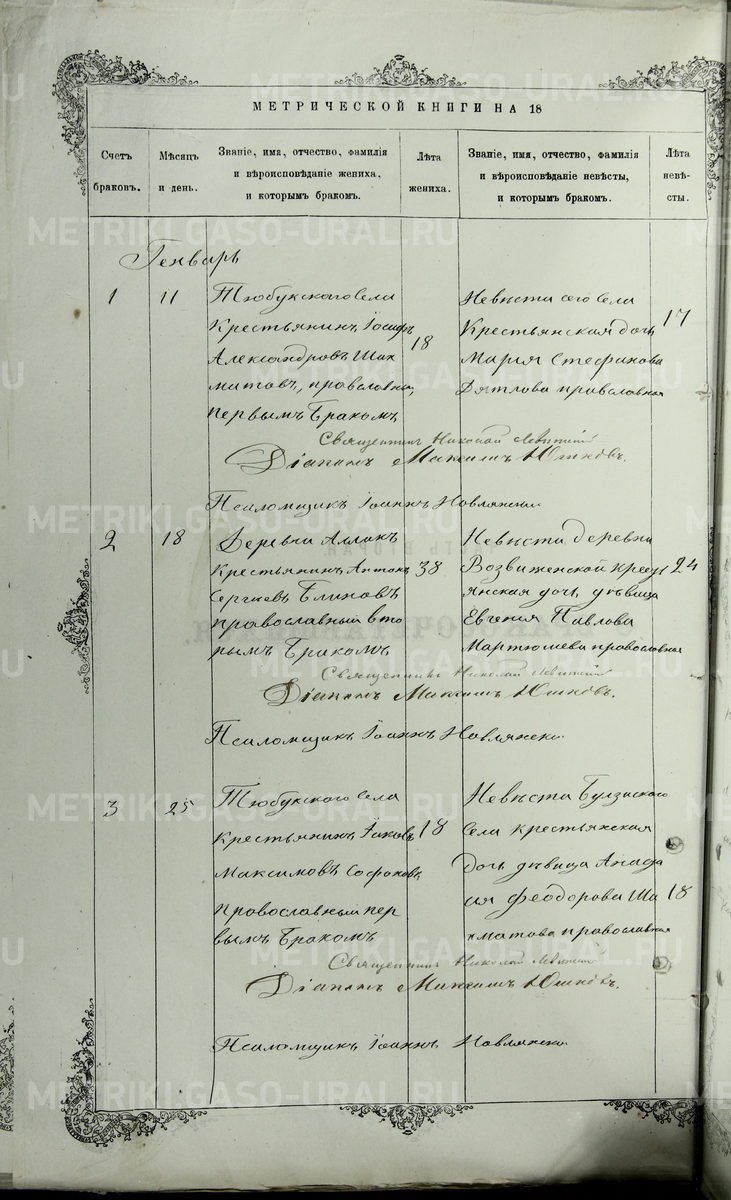 МЕТРИЧЕСКОЙ КНИГИ НА 18
Счетъ браковъ.
Мѣсяцъ и день.
Званіе, имя, отчество, фамилія и вѣроисповѣданіе жениха, и которымъ бракомъ.
Лѣта жениха.
Званіе, имя, отчество, фамилія и вѣроисповѣданіе невѣсты, и которымъ бракомъ.
Лѣта невѣ-сты.
Генварь
1
11
Тюбукского села
Крестьянинъ Іосифъ
Александровъ Шах
матовъ, православный,
первымъ бракомъ
18
Невѣста сего села
Крестьянская дочь
Марія Стефанова
Дятлова православная
17
Священникъ Николай
Діаконъ Максимъ Юшковъ.
Псаломщикъ Іоаннъ
2
18
Деревни
Крестьянинъ Антонъ
Сергіевъ Блиновъ
православный вто
рымъ бракомъ
38
Невѣста деревни
Воздвиженской крест
янская дочь, дѣвица
Евгенія Павлова
православная
24
Священникъ Николай
Діаконъ Максимъ Юшковъ.
Псаломщикъ Іоаннъ
3
25
Тюбукского села
Крестьянинъ Іаковъ
Максимовъ
Православный пер
вымъ бракомъ
18
Невѣста
села крестьянская
дочь дѣвица Анаста
ия Феодорова Ша
хматова православная
18
Священникъ Николай
Діаконъ Максимъ Юшковъ.
Псаломщикъ Іоаннъ
METRIKI.GASO-URAL.RU